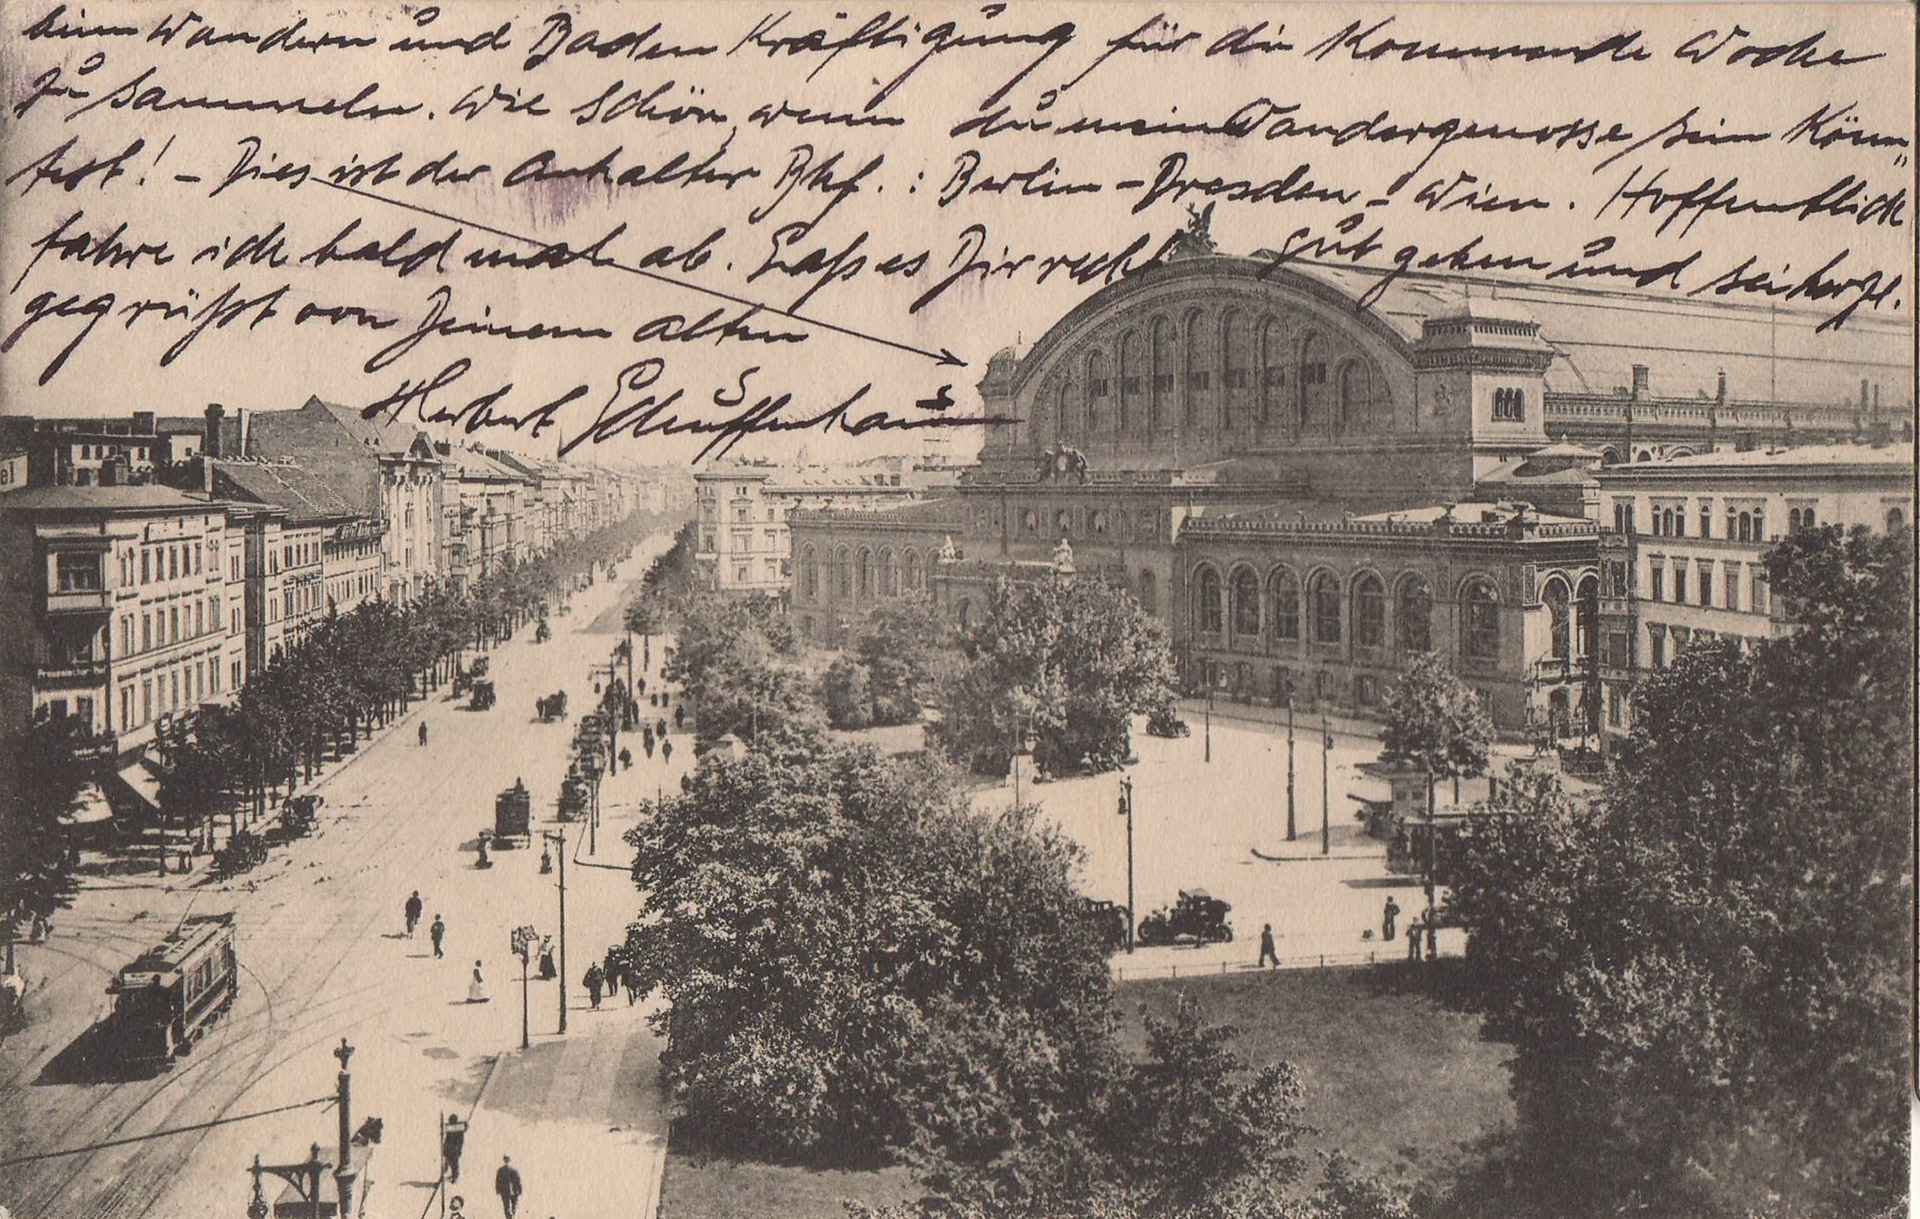 beim Wandern und Baden Kräftigung für die kommende Woche
zu sammeln. Wie schön, wenn du mein Wandergenosse sein könn„
test! – Dies ist der Anhalter Bhf. : Berlin – Dresden – Wien. Hoffentlich
fahre ich bald mal ab. Laß es Dir recht gut gehen und sei herzl.
gegrüßt von Deinem alten
Herbert
el